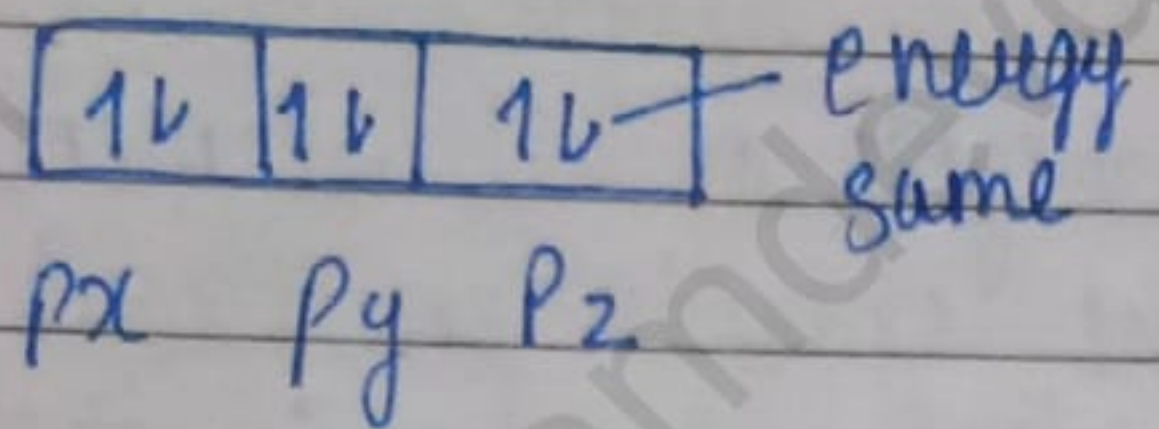 1⇂ 1⇂ 1⇂ energy
same
px py Pz